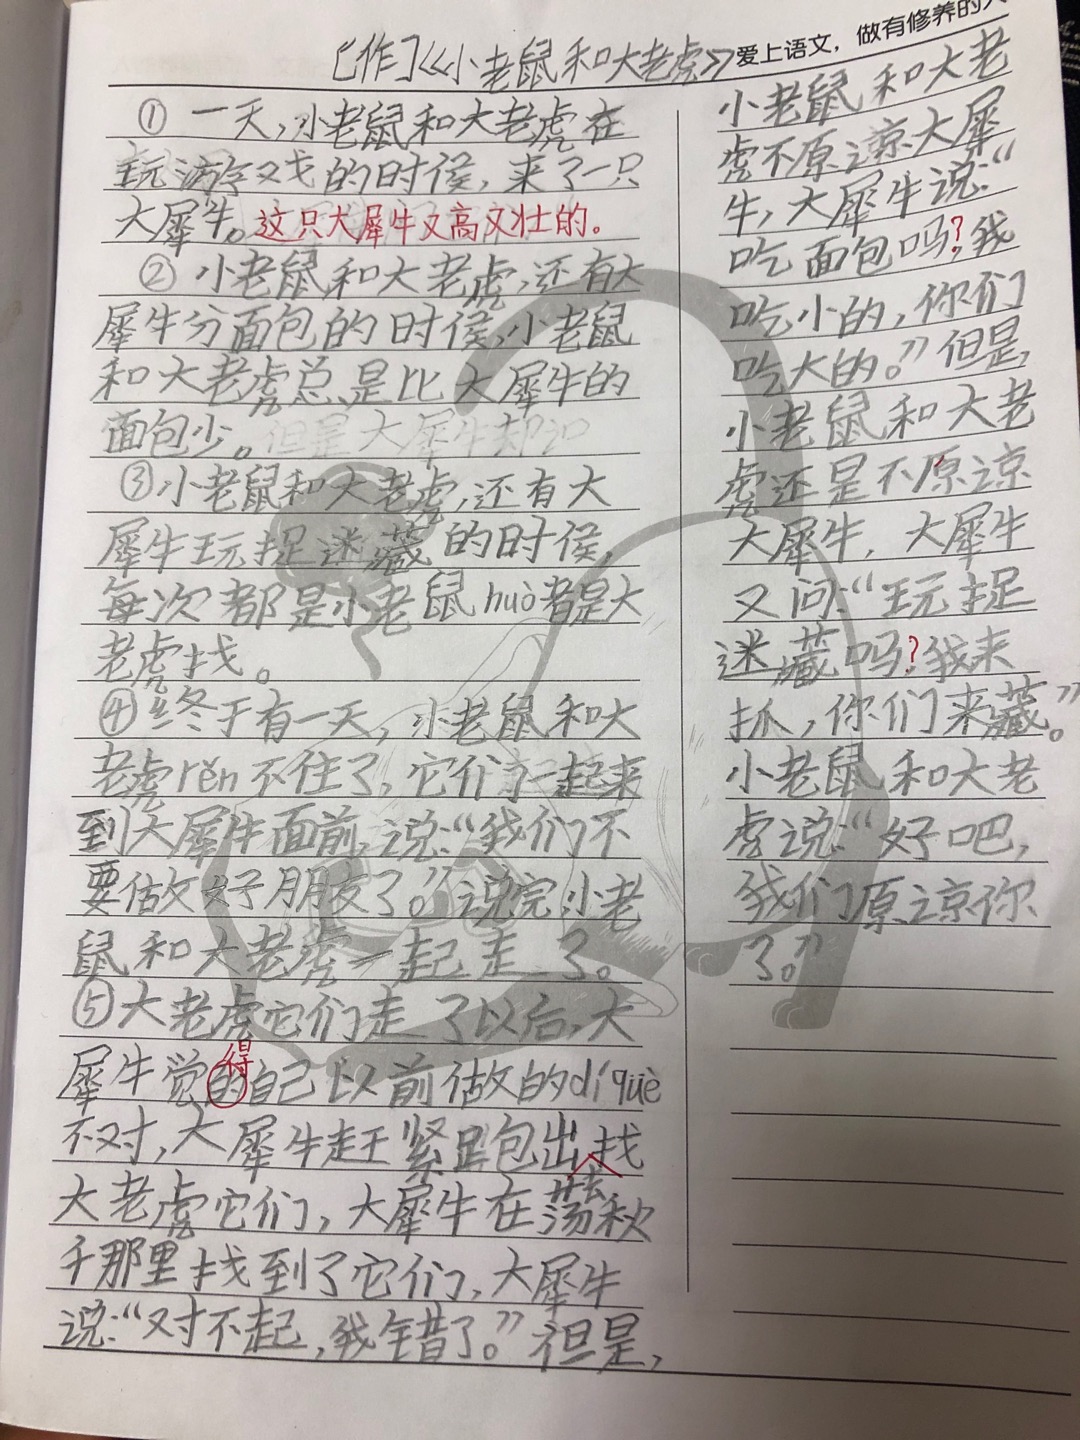 爱上语文，做有修养的人
[作]《小老鼠和大老虎》
① 一天，小老鼠和大老虎在
玩游戏的时侯，来了一只
大犀牛。这只大犀牛又高又壮的。
② 小老鼠和大老虎，还有大
犀牛分面包的时侯，小老鼠
和大老虎总是比大犀牛的
面包少。
③小老鼠和大老虎，还有大
犀牛玩捉迷藏的时侯，
每次都是小老鼠huò者是大
老虎找。
④终于有一天，小老鼠和大
老虎rěn不住了，它们一起来
到大犀牛面前，说：“我们不
要做好朋友了。”说完，小老
鼠和大老虎一起走了。
⑤大老虎它们走了以后，大
犀牛觉的得自己以前做的dí què
不对，大犀牛赶紧跑出去找
大老虎它们，大犀牛在荡秋
千那里找到了它们，大犀牛
说：“对不起，我错了。”但是，
小老鼠和大老
虎不原谅大犀
牛，大犀牛说：“
吃面包吗？我
吃小的，你们
吃大的。”但是，
小老鼠和大老
虎还是不原谅
大犀牛，大犀牛
又问：“玩捉
迷藏吗？我来
抓，你们来藏。”
小老鼠和大老
虎说：“好吧，
我们原谅你
了。”